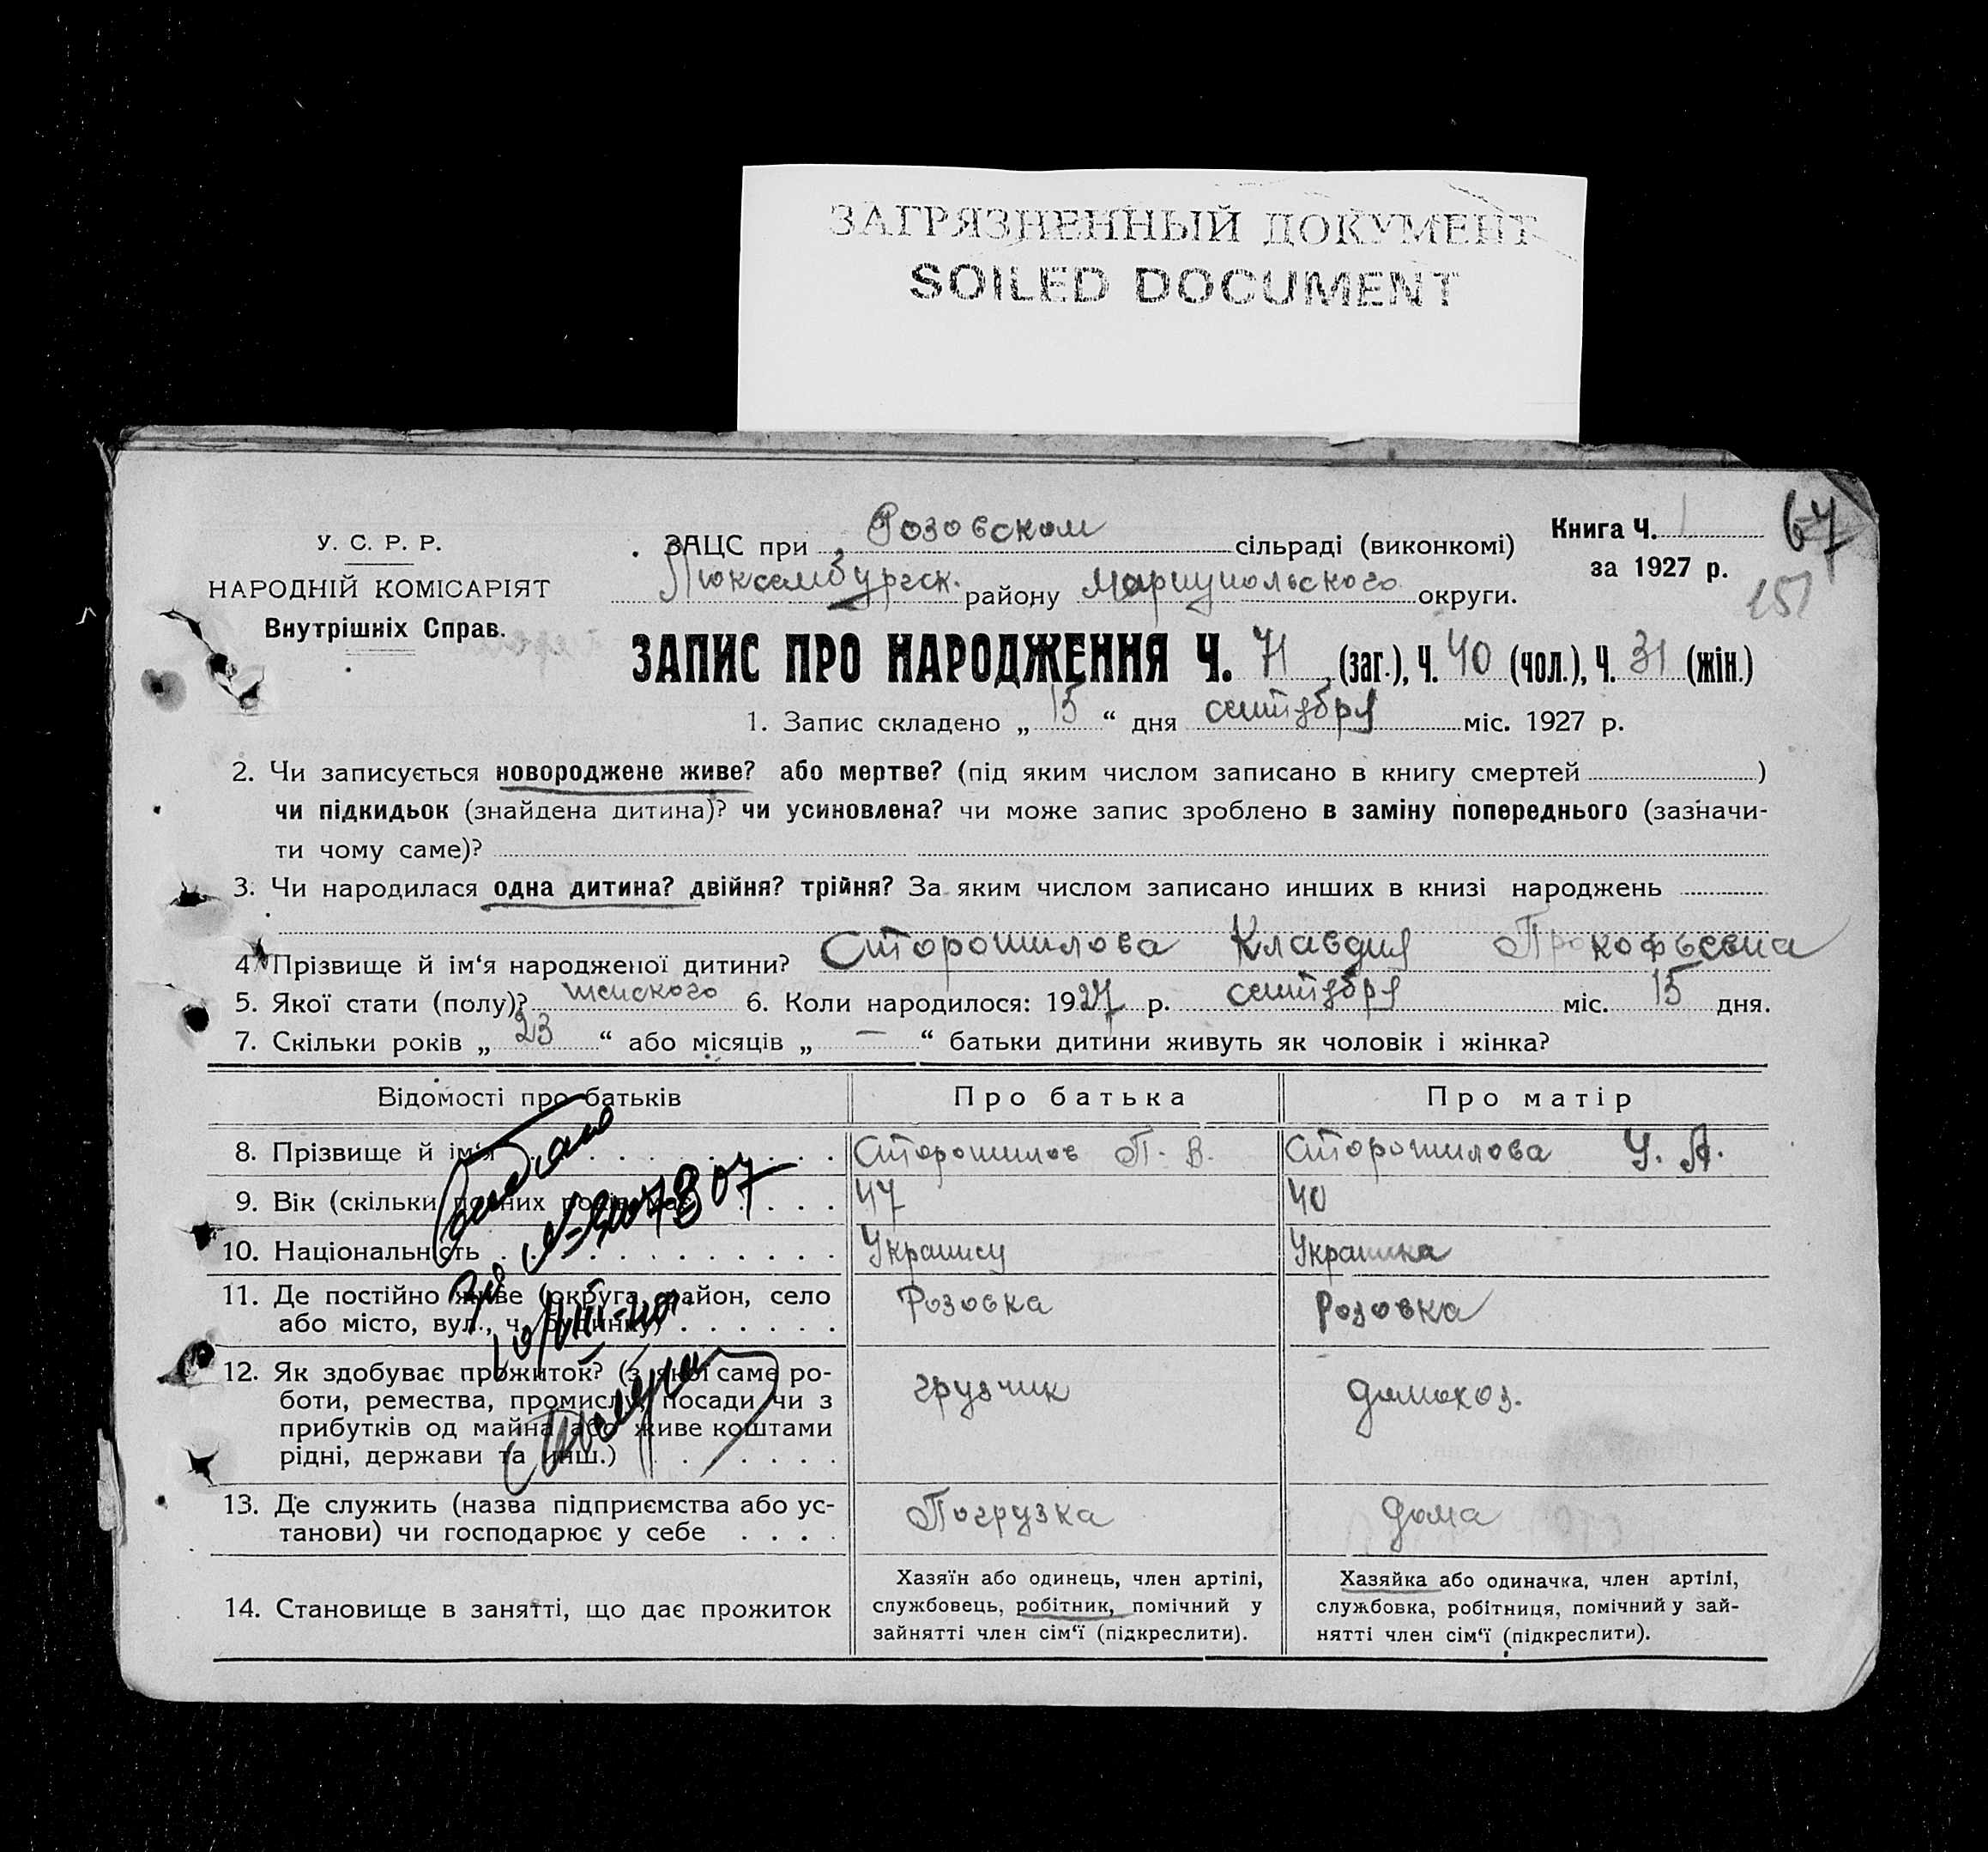 ЗАГРЯЗНЕННЫЙ ДОКУМЕНТ
SOILED DOCUMENT
У. С. Р. Р.
НАРОДНІЙ КОМІСАРІЯТ
Внутрішніх Справ.
ЗАЦС при Розовском сільраді (виконкомі)
Люксембургск. району Мариупольского округи.
Книга Ч. 1
за 1927 р.
67
151
ЗАПИС ПРО НАРОДЖЕННЯ Ч. 71 (заг.), Ч. 40 (чол.), Ч. 31 (жін.)
1. Запис складено „ 15 “ дня сентября міс. 1927 р.
2. Чи записується новороджене живе? або мертве? (під яким числом записано в книгу смертей )
чи підкидьок (знайдена дитина)? чи усиновлена? чи може запис зроблено в заміну попереднього (зазначи-
ти чому саме)?
3. Чи народилася одна дитина? двійня? трійня? За яким числом записано инших в книзі народжень
4. Прізвище й ім‘я народженої дитини? Сторошилова Клавдия Прокофьевна
5. Якої стати (полу)? женского 6. Коли народилося: 1927 р. сентября міс. 15 дня.
7. Скільки років „ 23 “ або місяців „ — “ батьки дитини живуть як чоловік і жінка?
Відомості про батьків Про батька Про матір
8. Прізвище й ім‘я Сторошилов П. В. Сторошилова У. А.
9. Вік (скільки повних років має) 47 40
10. Національність Украинец Украинка
11. Де постійно живе (округа, район, село
або місто, вул., ч. будинку) Розовка Розовка
12. Як здобуває прожиток? (з якої саме ро-
боти, ремества, промислу, посади чи з
прибутків од майна або живе коштами
рідні, держави та инш.) грузчик домохоз.
13. Де служить (назва підприємства або ус-
танови) чи господарює у себе Погрузка дома
14. Становище в занятті, що дає прожиток
Хазяїн або одинець, член артілі,
службовець, робітник, помічний у
зайнятті член сім‘ї (підкреслити).
Хазяйка або одиначка, член артілі,
службовка, робітниця, помічний у зай-
нятті член сім‘ї (підкреслити).